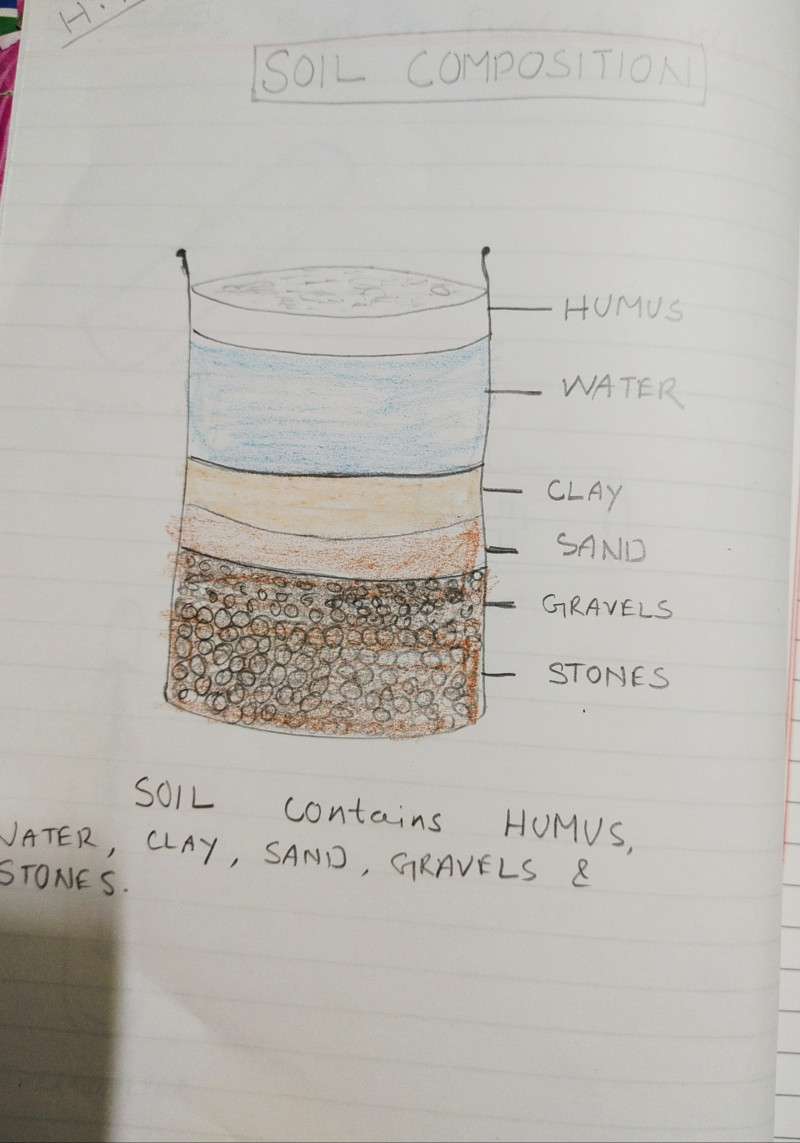 SOIL COMPOSITION
HUMUS
WATER
CLAY
SAND
GRAVELS
STONES
SOIL contains HUMUS,
WATER, CLAY, SAND, GRAVELS &
STONES.